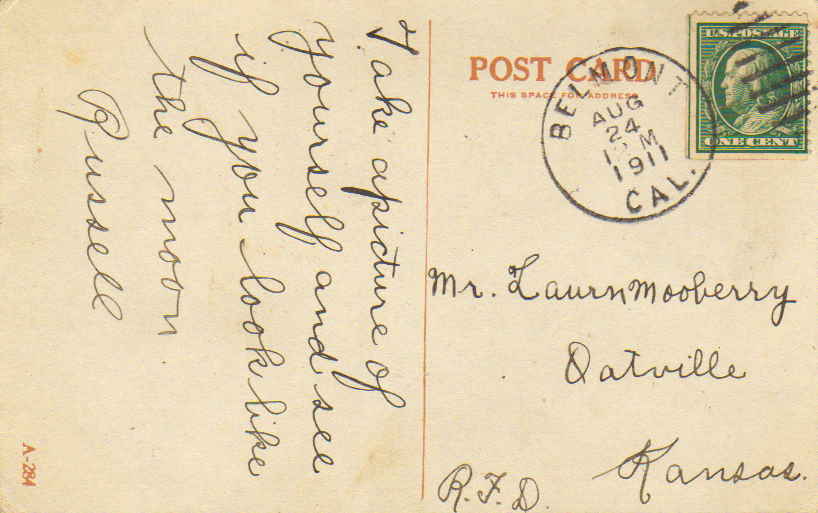 Take a picture of
yourself and see
if you look like
the moon
Russell
A-284
POST CARD
THIS SPACE FOR ADDRESS
BELMONT
AUG
24
M
1911
CAL.
U.S. POSTAGE
ONE CENT
Mr. Laurn Mooberry
Oatville
Kansas.
R.F.D.